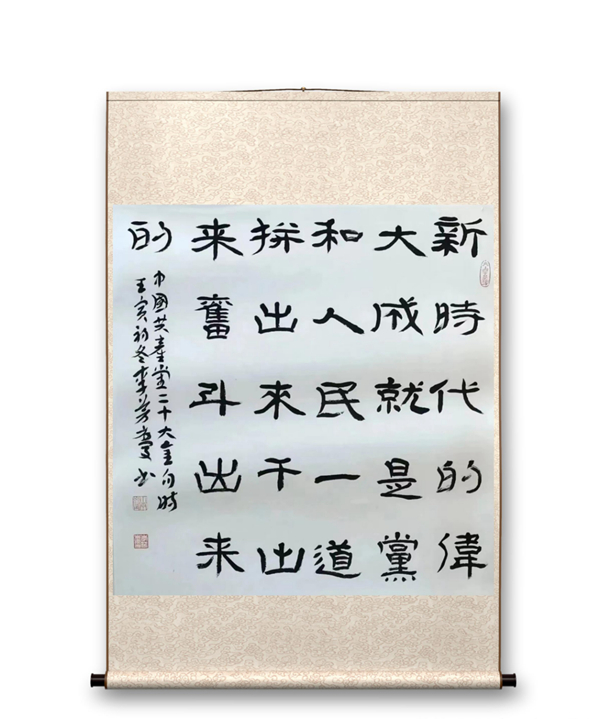 新時代的偉
大成就是黨
和人民一道
拼出來干出
来奮斗出来
的
中國共産党二十大時
壬寅初冬李芳书